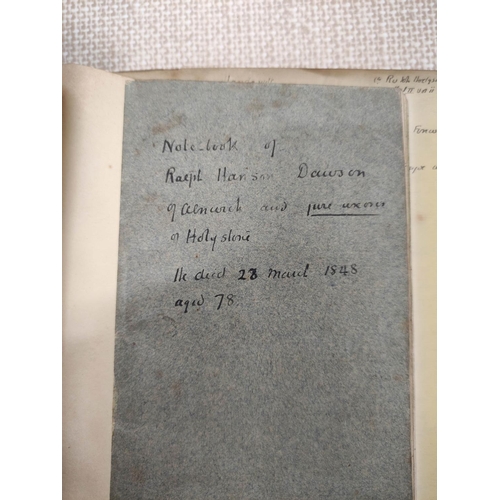 Note-book of
Ralph Hanson Dawson
of Alnwick and jure uxoris
of Holystone
He died 23 March 1848
aged 78